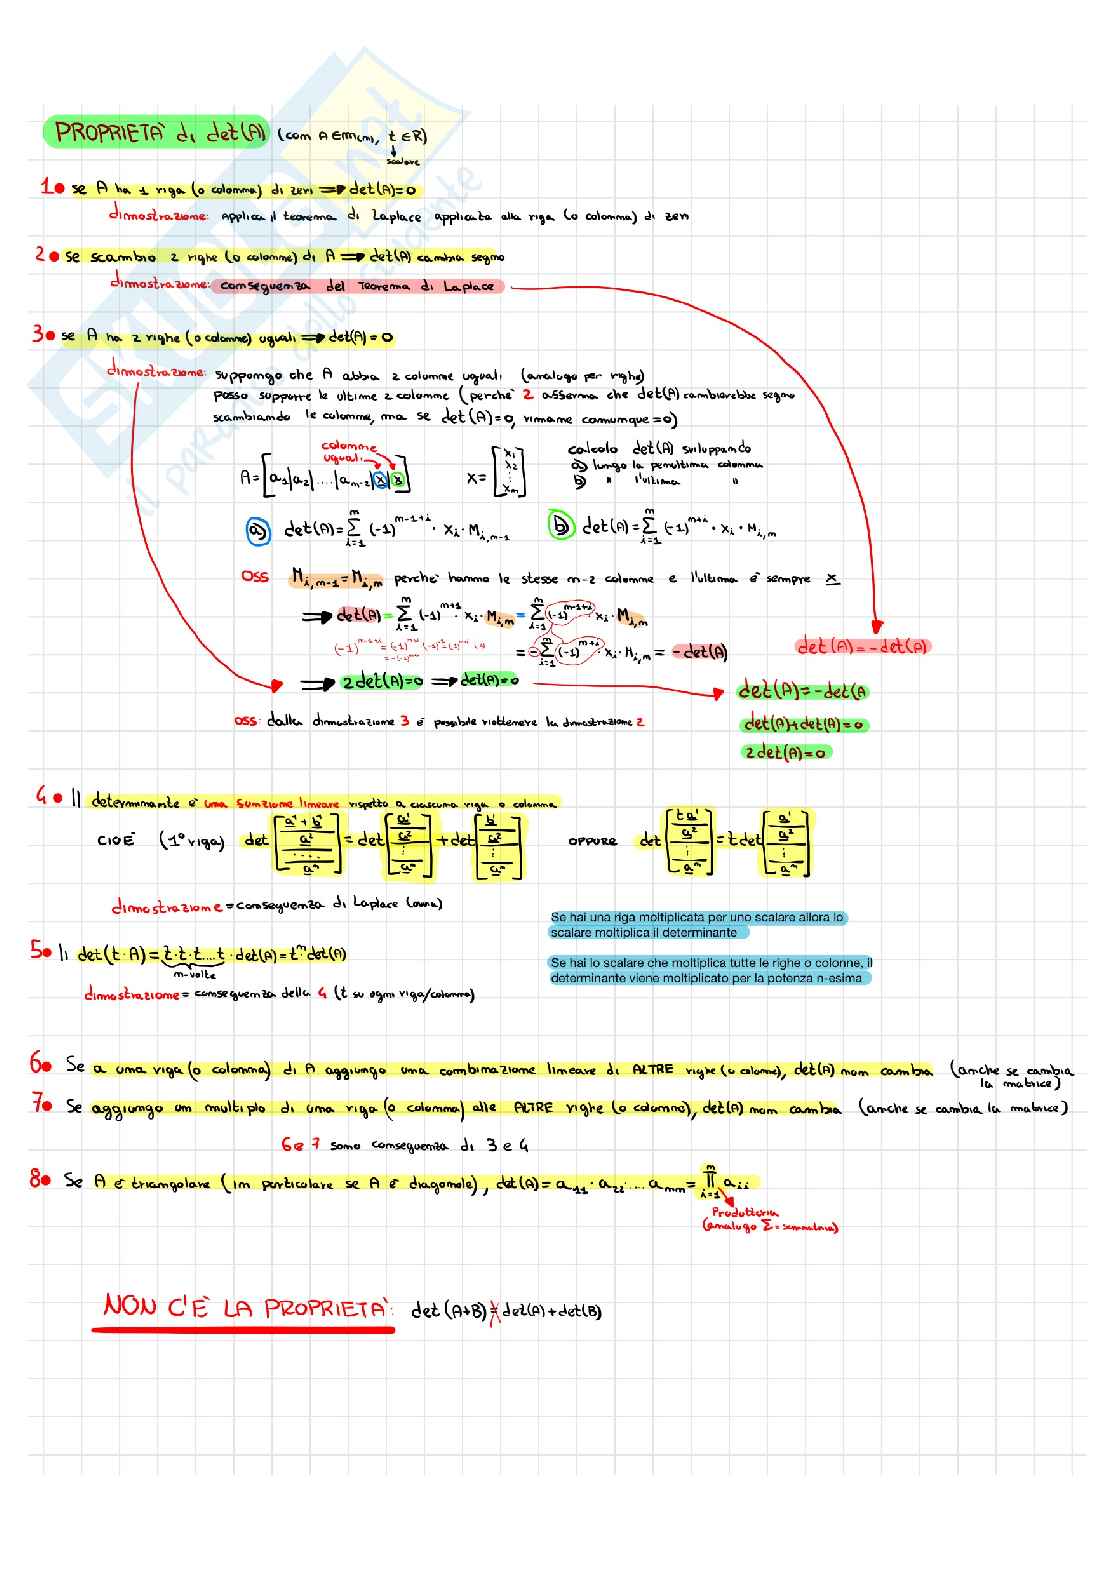 PROPRIETÀ di det(A) (con A ∈ M(n), t ∈ R)
scalare
1• se A ha 1 riga (o colonna) di zeri ⟹ det(A)=0
dimostrazione: Applica il teorema di Laplace applicata alla riga (o colonna) di zeri
2• Se scambio 2 righe (o colonne) di A ⟹ det(A) cambia segno
dimostrazione: conseguenza del Teorema di Laplace
3• se A ha 2 righe (o colonne) uguali ⟹ det(A) = 0
dimostrazione: suppongo che A abbia 2 colonne uguali (analogo per righe)
posso supporre le ultime 2 colonne (perchè 2 afferma che det(A) cambierebbe segno
scambiando le colonne, ma se det(A)=0, rimane comunque =0)
colonne
uguali
A = [a₁|a₂|....|aₙ₋₂|x|x] x = [x₁ x₂ ⋮ xₙ]
calcolo det(A) sviluppando
a) lungo la penultima colonna
b) " l'ultima "
a) det(A) = Σ_{i=1}^{n} (-1)^{n-1+i} · x_i · M_{i,n-1} b) det(A) = Σ_{i=1}^{n} (-1)^{n+i} · x_i · M_{i,n}
OSS M_{i,n-1} = M_{i,n} perchè hanno le stesse n-2 colonne e l'ultima è sempre x
⟹ det(A) = Σ_{i=1}^{n} (-1)^{n+i} · x_i · M_{i,n} = Σ_{i=1}^{n} (-1)^{n-1+i} · x_i · M_{i,n}
= -Σ_{i=1}^{n} (-1)^{n+i} · x_i · M_{i,n} = -det(A)
det(A) = -det(A)
⟹ 2det(A)=0 ⟹ det(A)=0
det(A) = -det(A
det(A)+det(A)=0
2det(A)=0
OSS: dalla dimostrazione 3 è possibile riottenere la dimostrazione 2
4• Il determinante è una funzione lineare rispetto a ciascuna riga o colonna
CIOÈ (1° riga) det[a¹+b¹ / a² / .... / aⁿ] = det[a¹ / a² / ⋮ / aⁿ] + det[b¹ / a² / ⋮ / aⁿ] OPPURE det[ta¹ / a² / ⋮ / aⁿ] = t det[a¹ / a² / ⋮ / aⁿ]
dimostrazione = conseguenza di Laplace
Se hai una riga moltiplicata per uno scalare allora lo
scalare moltiplica il determinante
5• Il det(t·A) = t·t·t....t · det(A) = tⁿ det(A)
n-volte
Se hai lo scalare che moltiplica tutte le righe o colonne, il
determinante viene moltiplicato per la potenza n-esima
dimostrazione = conseguenza della 4 (t su ogni riga/colonna)
6• Se a una riga (o colonna) di A aggiungo una combinazione lineare di ALTRE righe (o colonne), det(A) non cambia (anche se cambia
la matrice)
7• Se aggiungo un multiplo di una riga (o colonna) alle ALTRE righe (o colonne), det(A) non cambia (anche se cambia la matrice)
6 e 7 sono conseguenza di 3 e 4
8• Se A è triangolare (in particolare se A è diagonale), det(A) = a₁₁ · a₂₂ · ... aₙₙ = ∏_{i=1}^{n} a_{ii}
Produttoria
(analogo Σ = sommatoria)
NON C'È LA PROPRIETÀ: det(A+B) ≠ det(A) + det(B)